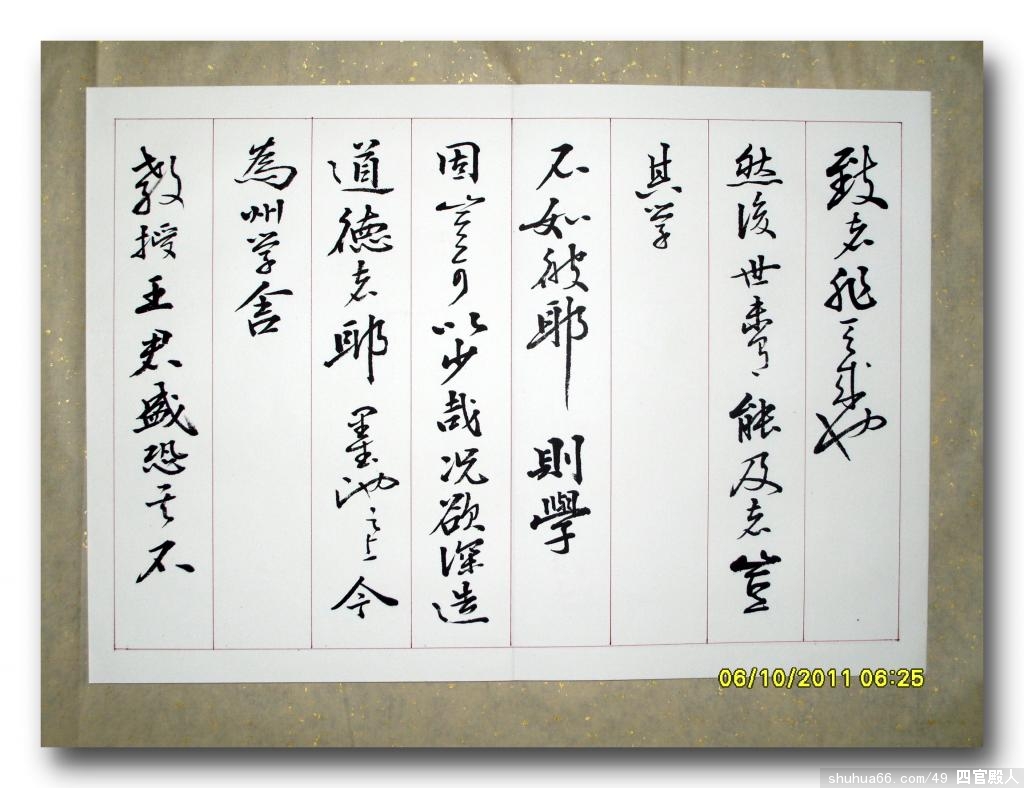 致者非天成也
然後世未有能及者豈
其学
不如彼耶則學
固豈可以少哉况欲深造
道德者耶墨池之上今
為州学舍
教授王君盛恐其不
06/10/2011 06:25
shuhua66.com/49 四官殿人